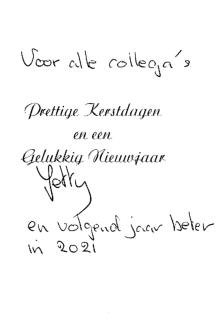 Voor alle collega's
Prettige Kerstdagen
en een
Gelukkig Nieuwjaar
Jetty
en volgend jaar beter
in 2021